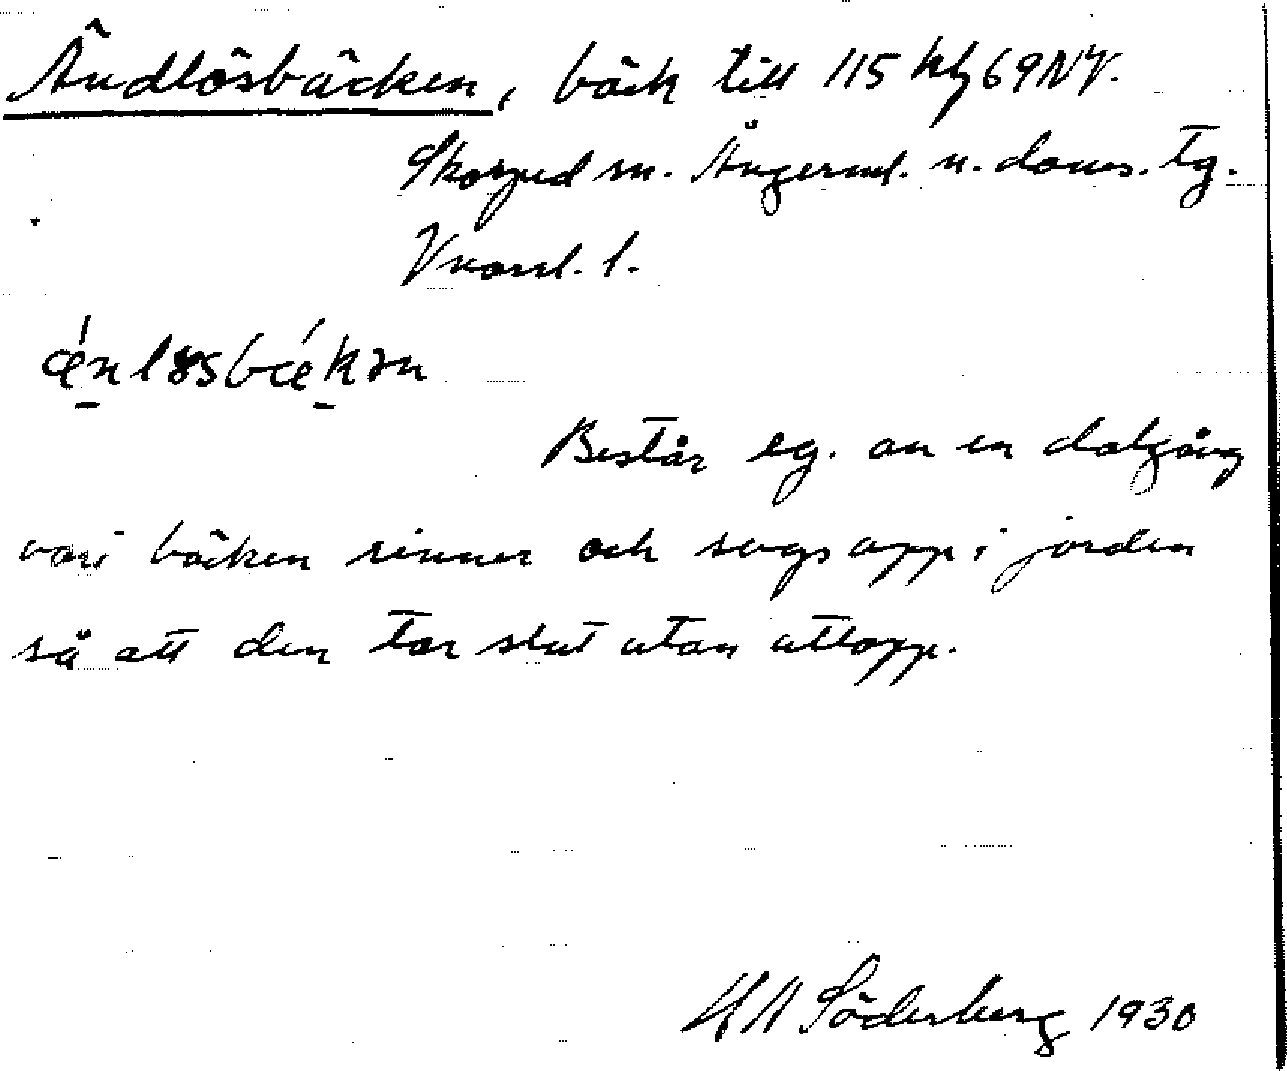 Ändlösbäcken, bäck till 115 hf 69NV.
Skorped sn. Ångerml. n. doms. tg.
Vnorrl. l.
ǽn løsbǽkən
Består eg. av en dalgång
vari bäcken rinner och sugs upp i jorden
så att den tar slut utan utlopp.
KA Söderberg 1930